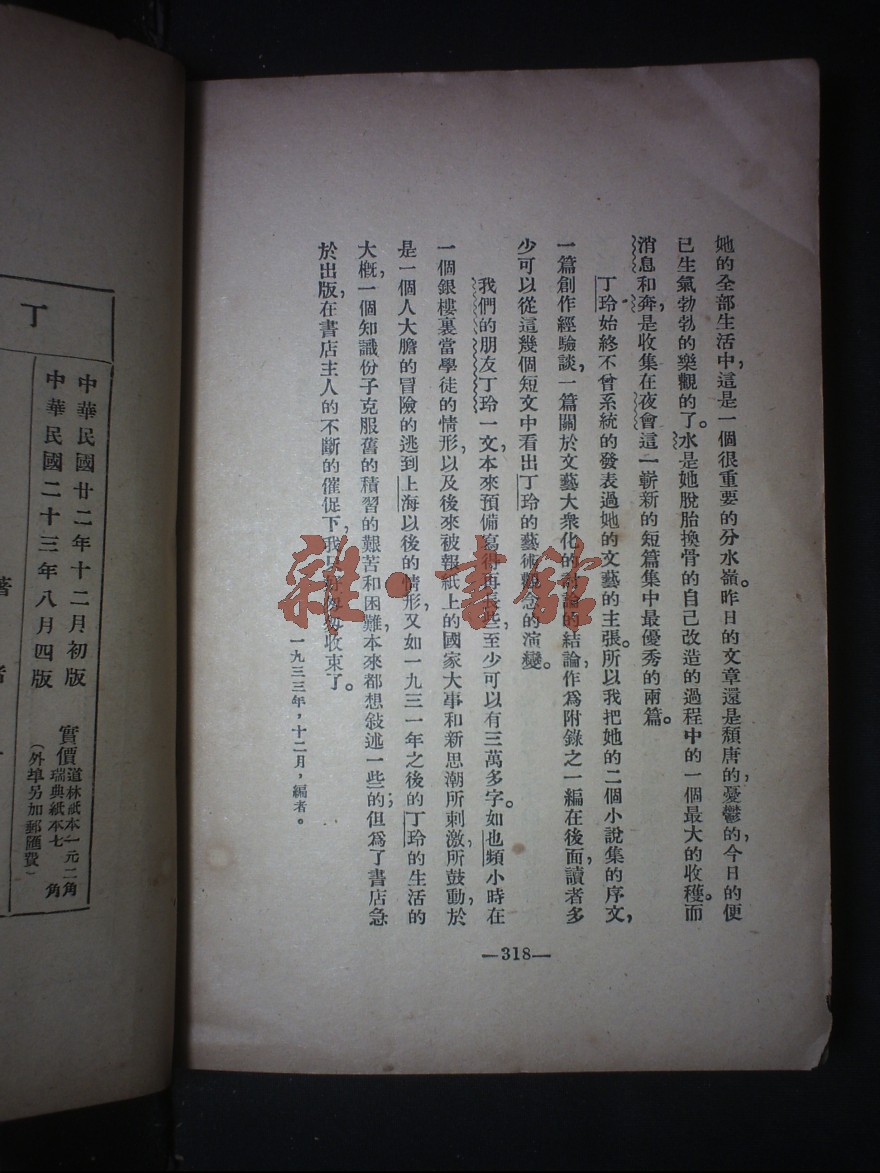 她的全部生活中，這是一個很重要的分水嶺。昨日的文章還是頹唐的，憂鬱的，今日的便
已生氣勃勃的樂觀的了。水是她脫胎換骨的自己改造的過程中的一個最大的收穫。而
消息和奔是收集在夜會這一嶄新的短篇集中最優秀的兩篇。
丁玲始終不曾系統的發表過她的文藝的主張。所以我把她的二個小說集的序文，
一篇創作經驗談，一篇關於文藝大衆化的討論的結論，作爲附錄之一編在後面，讀者多
少可以從這幾個短文中看出丁玲的藝術觀念的演變。
我們的朋友丁玲一文，本來預備寫得再長些，至少可以有三萬多字。如也頻小時在
一個銀樓裏當學徒的情形，以及後來被報紙上的國家大事和新思潮所刺激，所鼓動，於
是一個人大膽的冒險的逃到上海以後的情形，又如一九三一年之後的丁玲的生活的
大概，一個知識份子克服舊的積習的艱苦和困難，本來都想敍述一些的；但爲了書店急
於出版，在書店主人的不斷的催促下，我只好匆匆收束了。
一九三三年，十二月，編者。
—318—
雜·書館
丁
中華民國廿二年十二月初版
中華民國二十三年八月四版
實價
道林紙本一元二角
瑞典紙本七角
（外埠另加郵匯費）
著
者